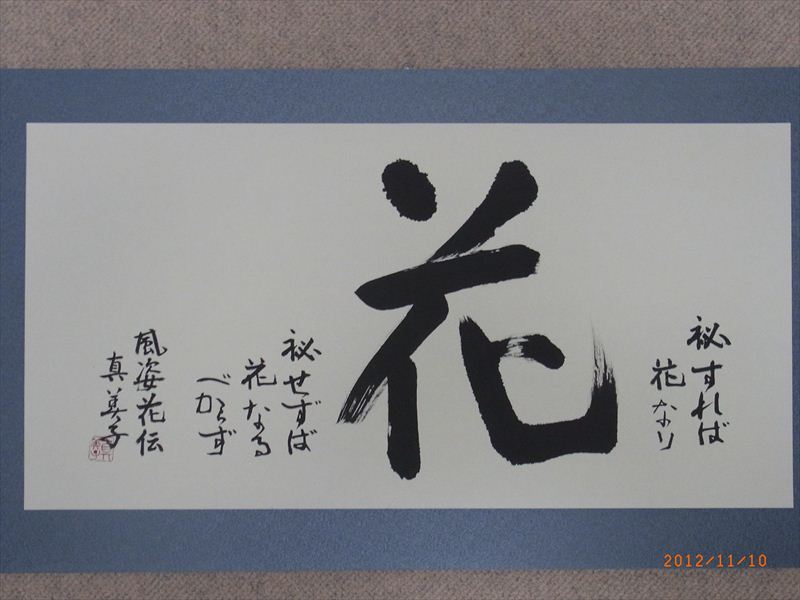 秘すれば
花なり
花
秘せずば
花なる
べからず
風姿花伝
真美子
2012/11/10